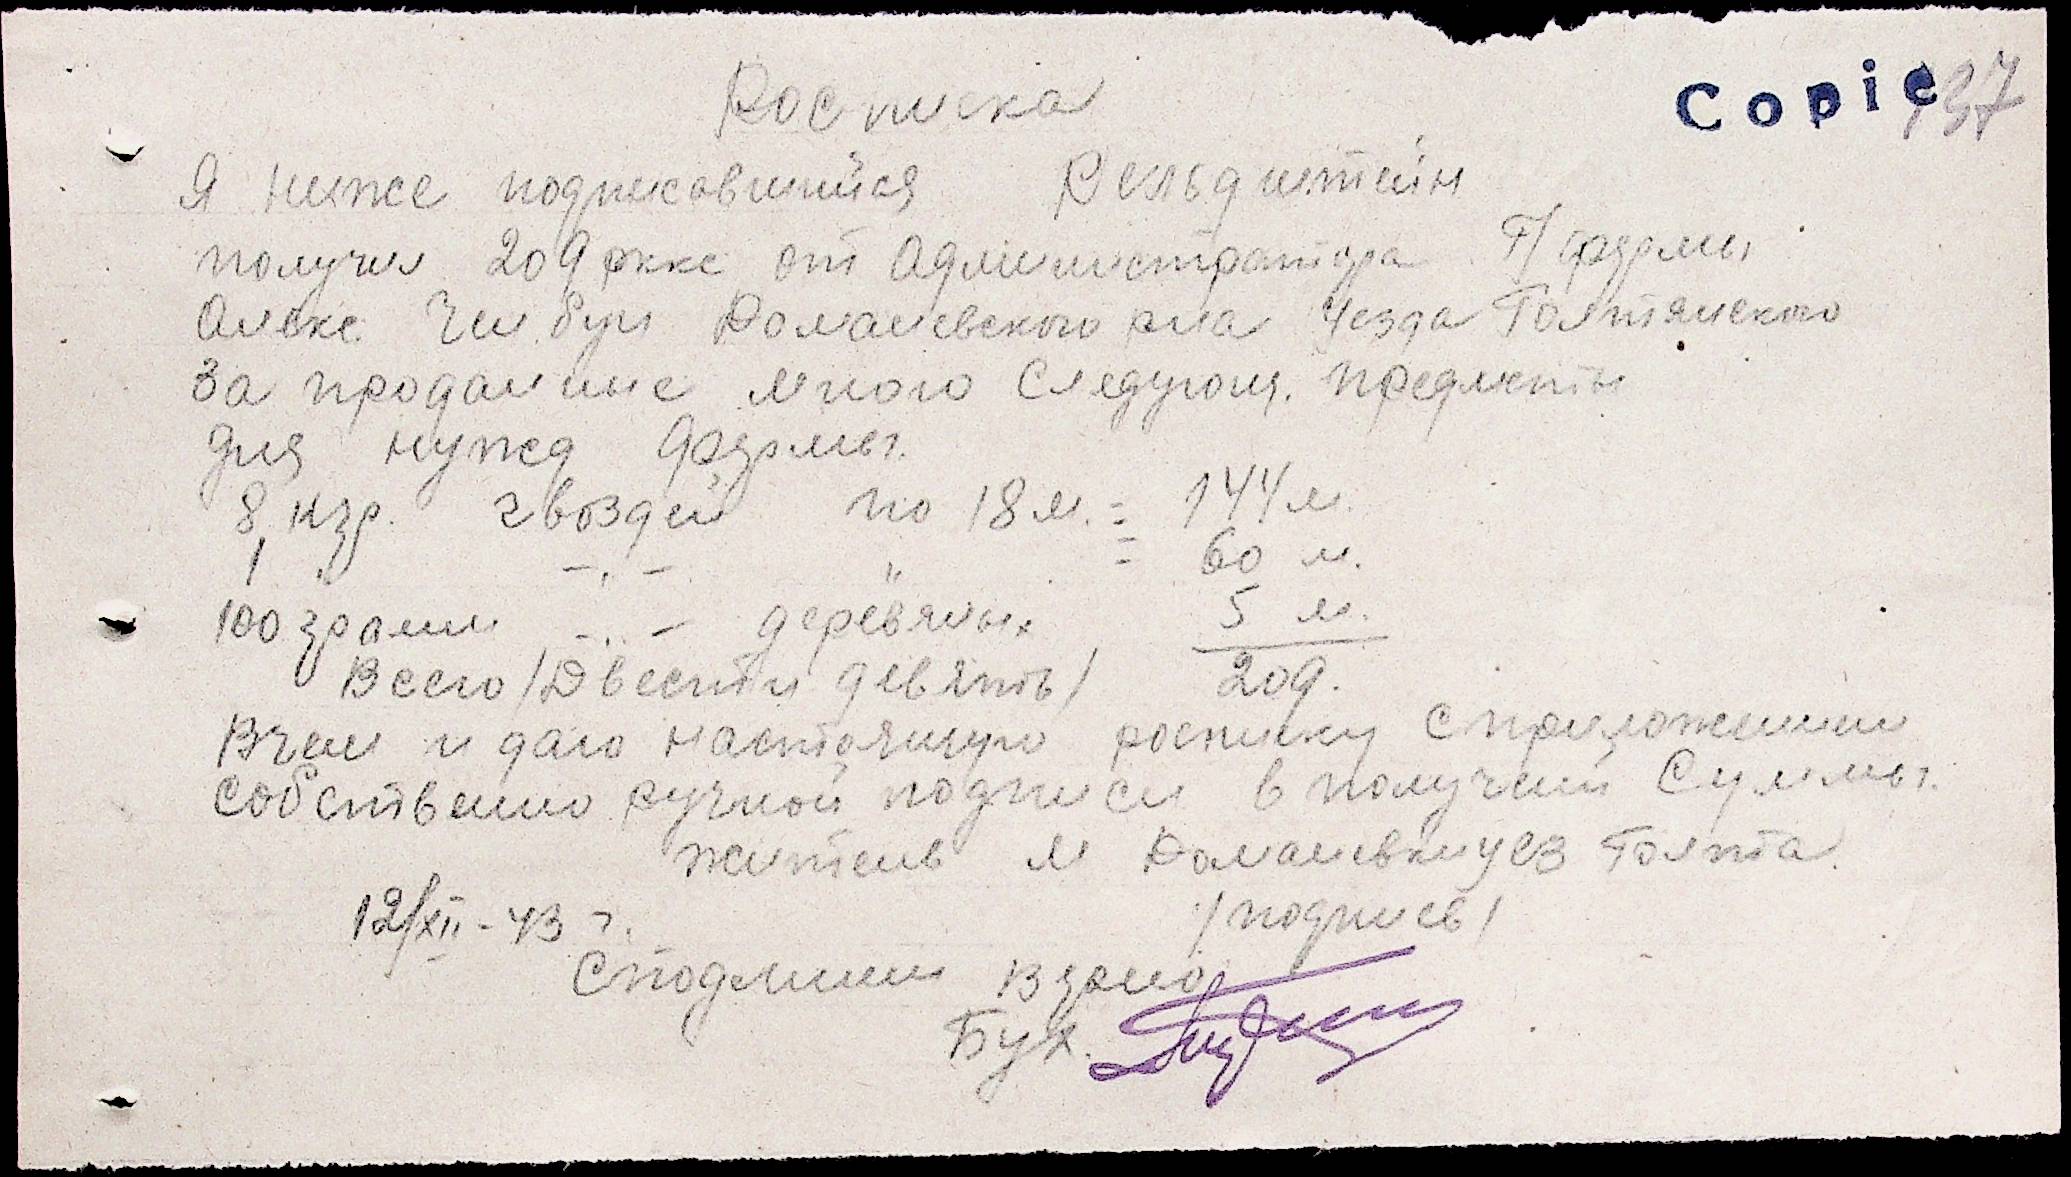 Росписка
Copie 137
Я ниже подписавшийся Вельдштейн
получил 209 ркке от Администратора П/фермы
Алекс. Чембун Доманевского р-на Уезда Голтянского
За проданные мною Следующ. предметы
для нужд фермы.
8 кгр. гвоздей по 18 м. = 144 м.
1 " -"- " = 60 м.
100 грамм -"- деревяных 5 м.
Всего /Двести девять/ 209.
В чем и даю настоящую росписку с приложением
собственно ручной подписи в получений Суммы.
житель м Доманевки уез Голта.
12/XII-43 г. /подпись/
С подлиным верно
Бух.